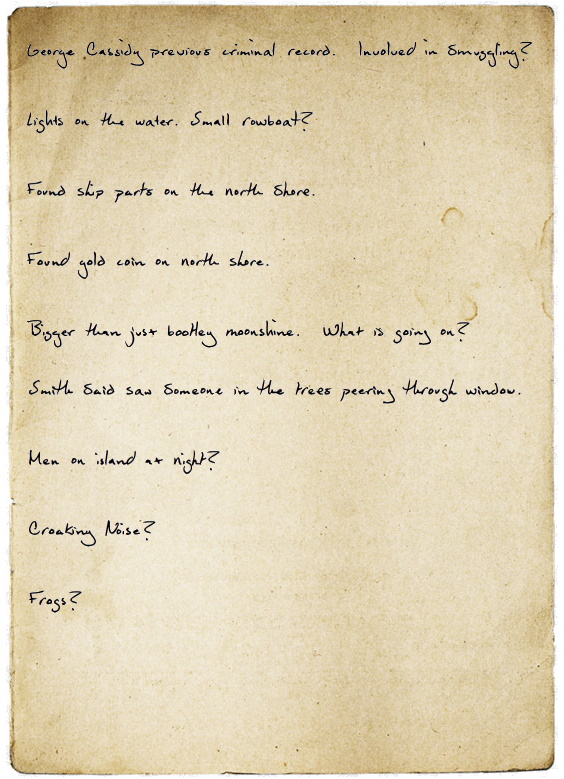 George Cassidy previous criminal record. Involved in Smuggling?
Lights on the water. Small rowboat?
Found ship parts on the north Shore.
Found gold coin on north shore.
Bigger than just bootleg moonshine. What is going on?
Smith Said saw Someone in the trees peering through window.
Men on island at night?
Croaking Noise?
Frogs?